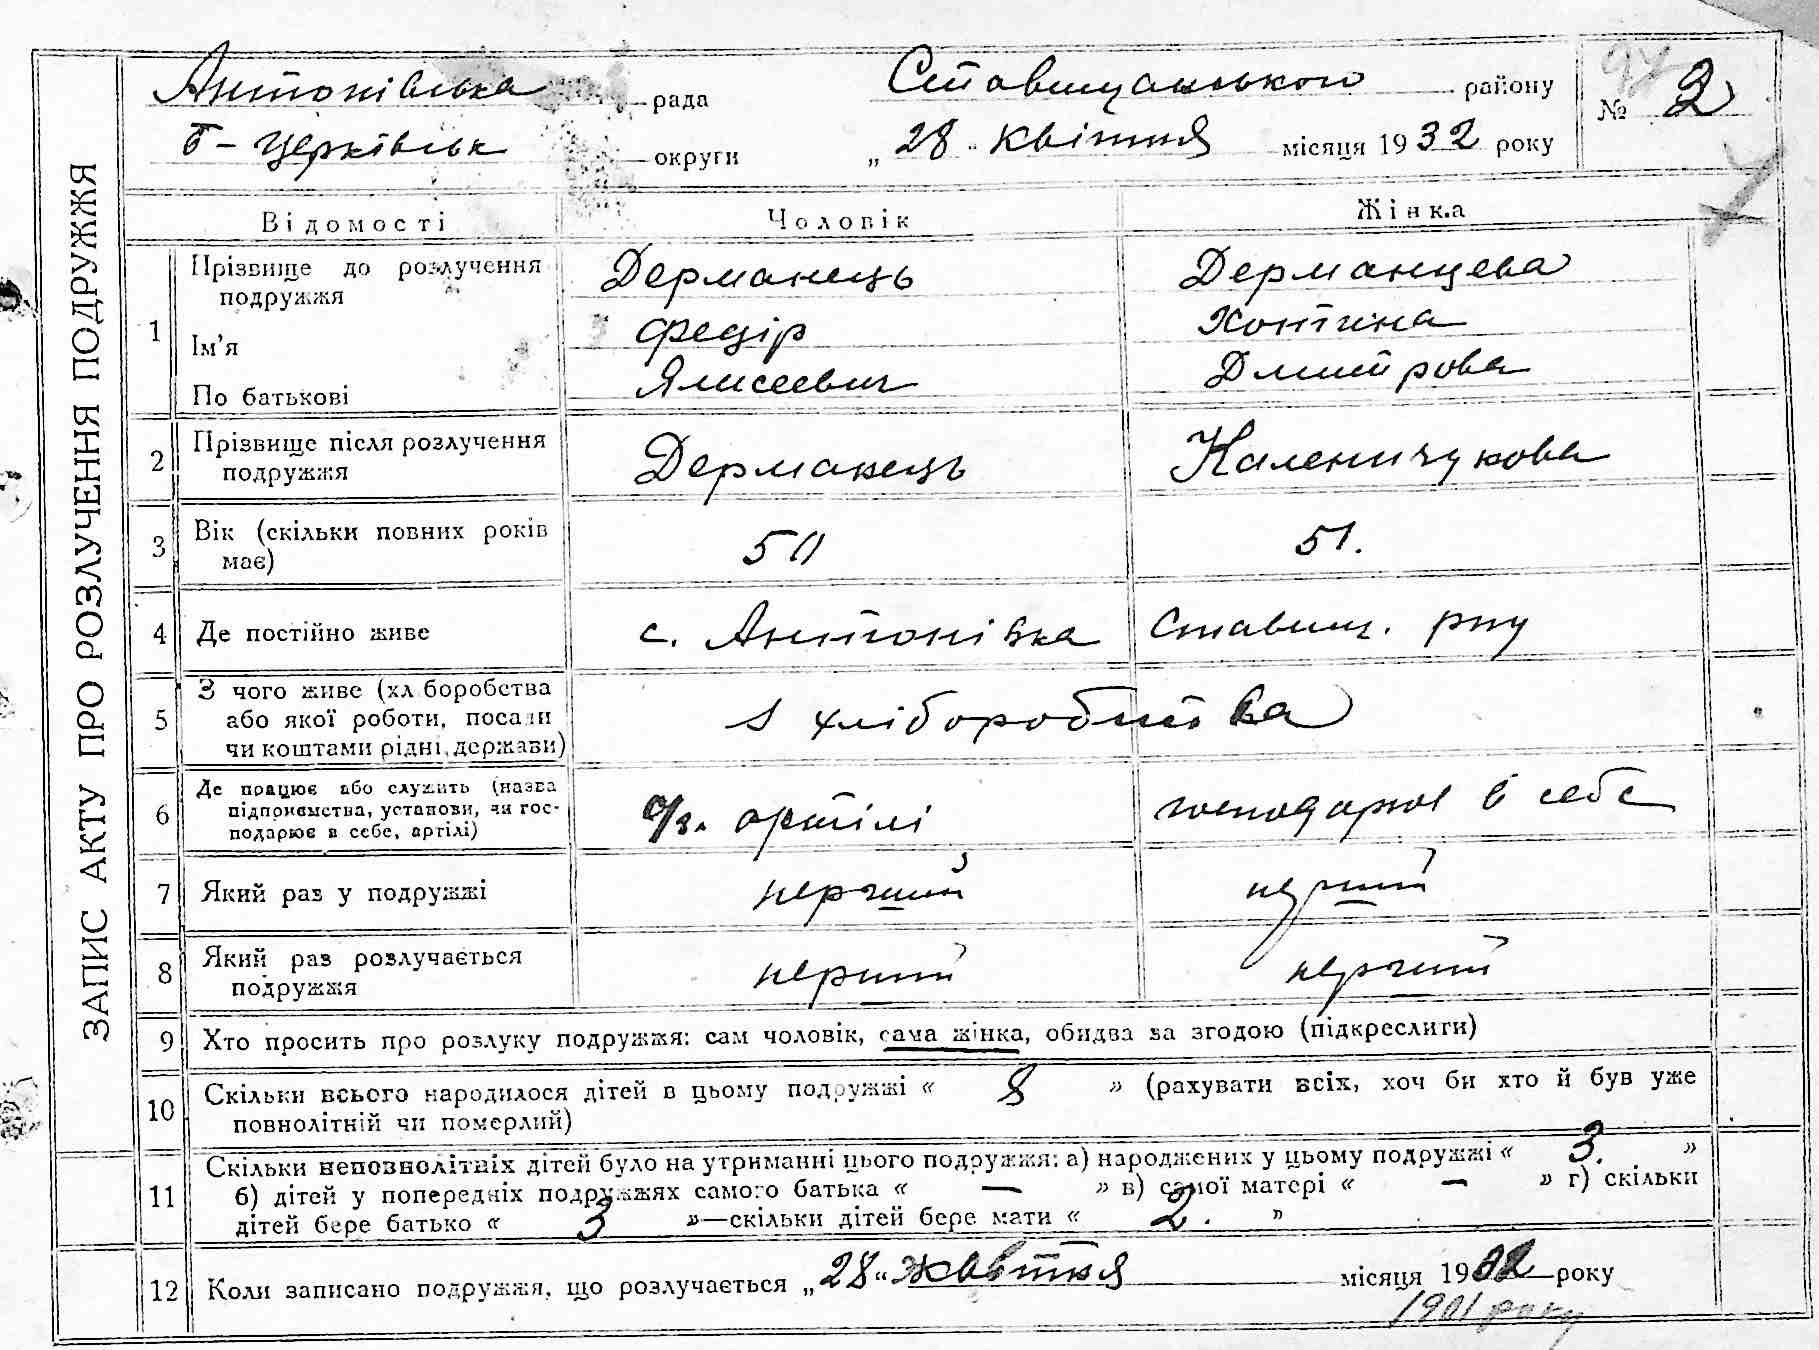 ЗАПИС АКТУ ПРО РОЗЛУЧЕННЯ ПОДРУЖЖЯ
Антонівська рада Ставищанського району № 2
Б-Церківськ округи „ 28 " квітня місяця 1932 року
Відомості Чоловік Жінка
1 Прізвище до розлучення подружжя Дерманець Дерманцева
Ім'я Федір Хотина
По батькові Ялисеевич Дмитрова
2 Прізвище після розлучення
подружжя Дерманець Каленичукова
3 Вік (скільки повних років
має) 50 51.
4 Де постійно живе с. Антонівка Ставищ. р-ну
5 З чого живе (хл боробства
або якої роботи, посади
чи коштами рідні, держави) з хліборобства
6 Де працює або служить (назва
підприємства, установи, чи гос-
подарює в себе, артілі) артілі господарює в себе
7 Який раз у подружжі перший перший
8 Який раз розлучається
подружжя перший перший
9 Хто просить про розлуку подружжя: сам чоловік, сама жінка, обидва за згодою (підкреслити)
10 Скільки всього народилося дітей в цьому подружжі « 8 » (рахувати всіх, хоч би хто й був уже
повнолітній чи померлий)
11 Скільки неповнолітніх дітей було на утриманні цього подружжя: а) народжених у цьому подружжі « 3. »
б) дітей у попередніх подружжях самого батька « — » в) самої матері « — » г) скільки
дітей бере батько « 3 »—скільки дітей бере мати « 2. »
12 Коли записано подружжя, що розлучається „ 28 " жовтня місяця 19 року
1901 року